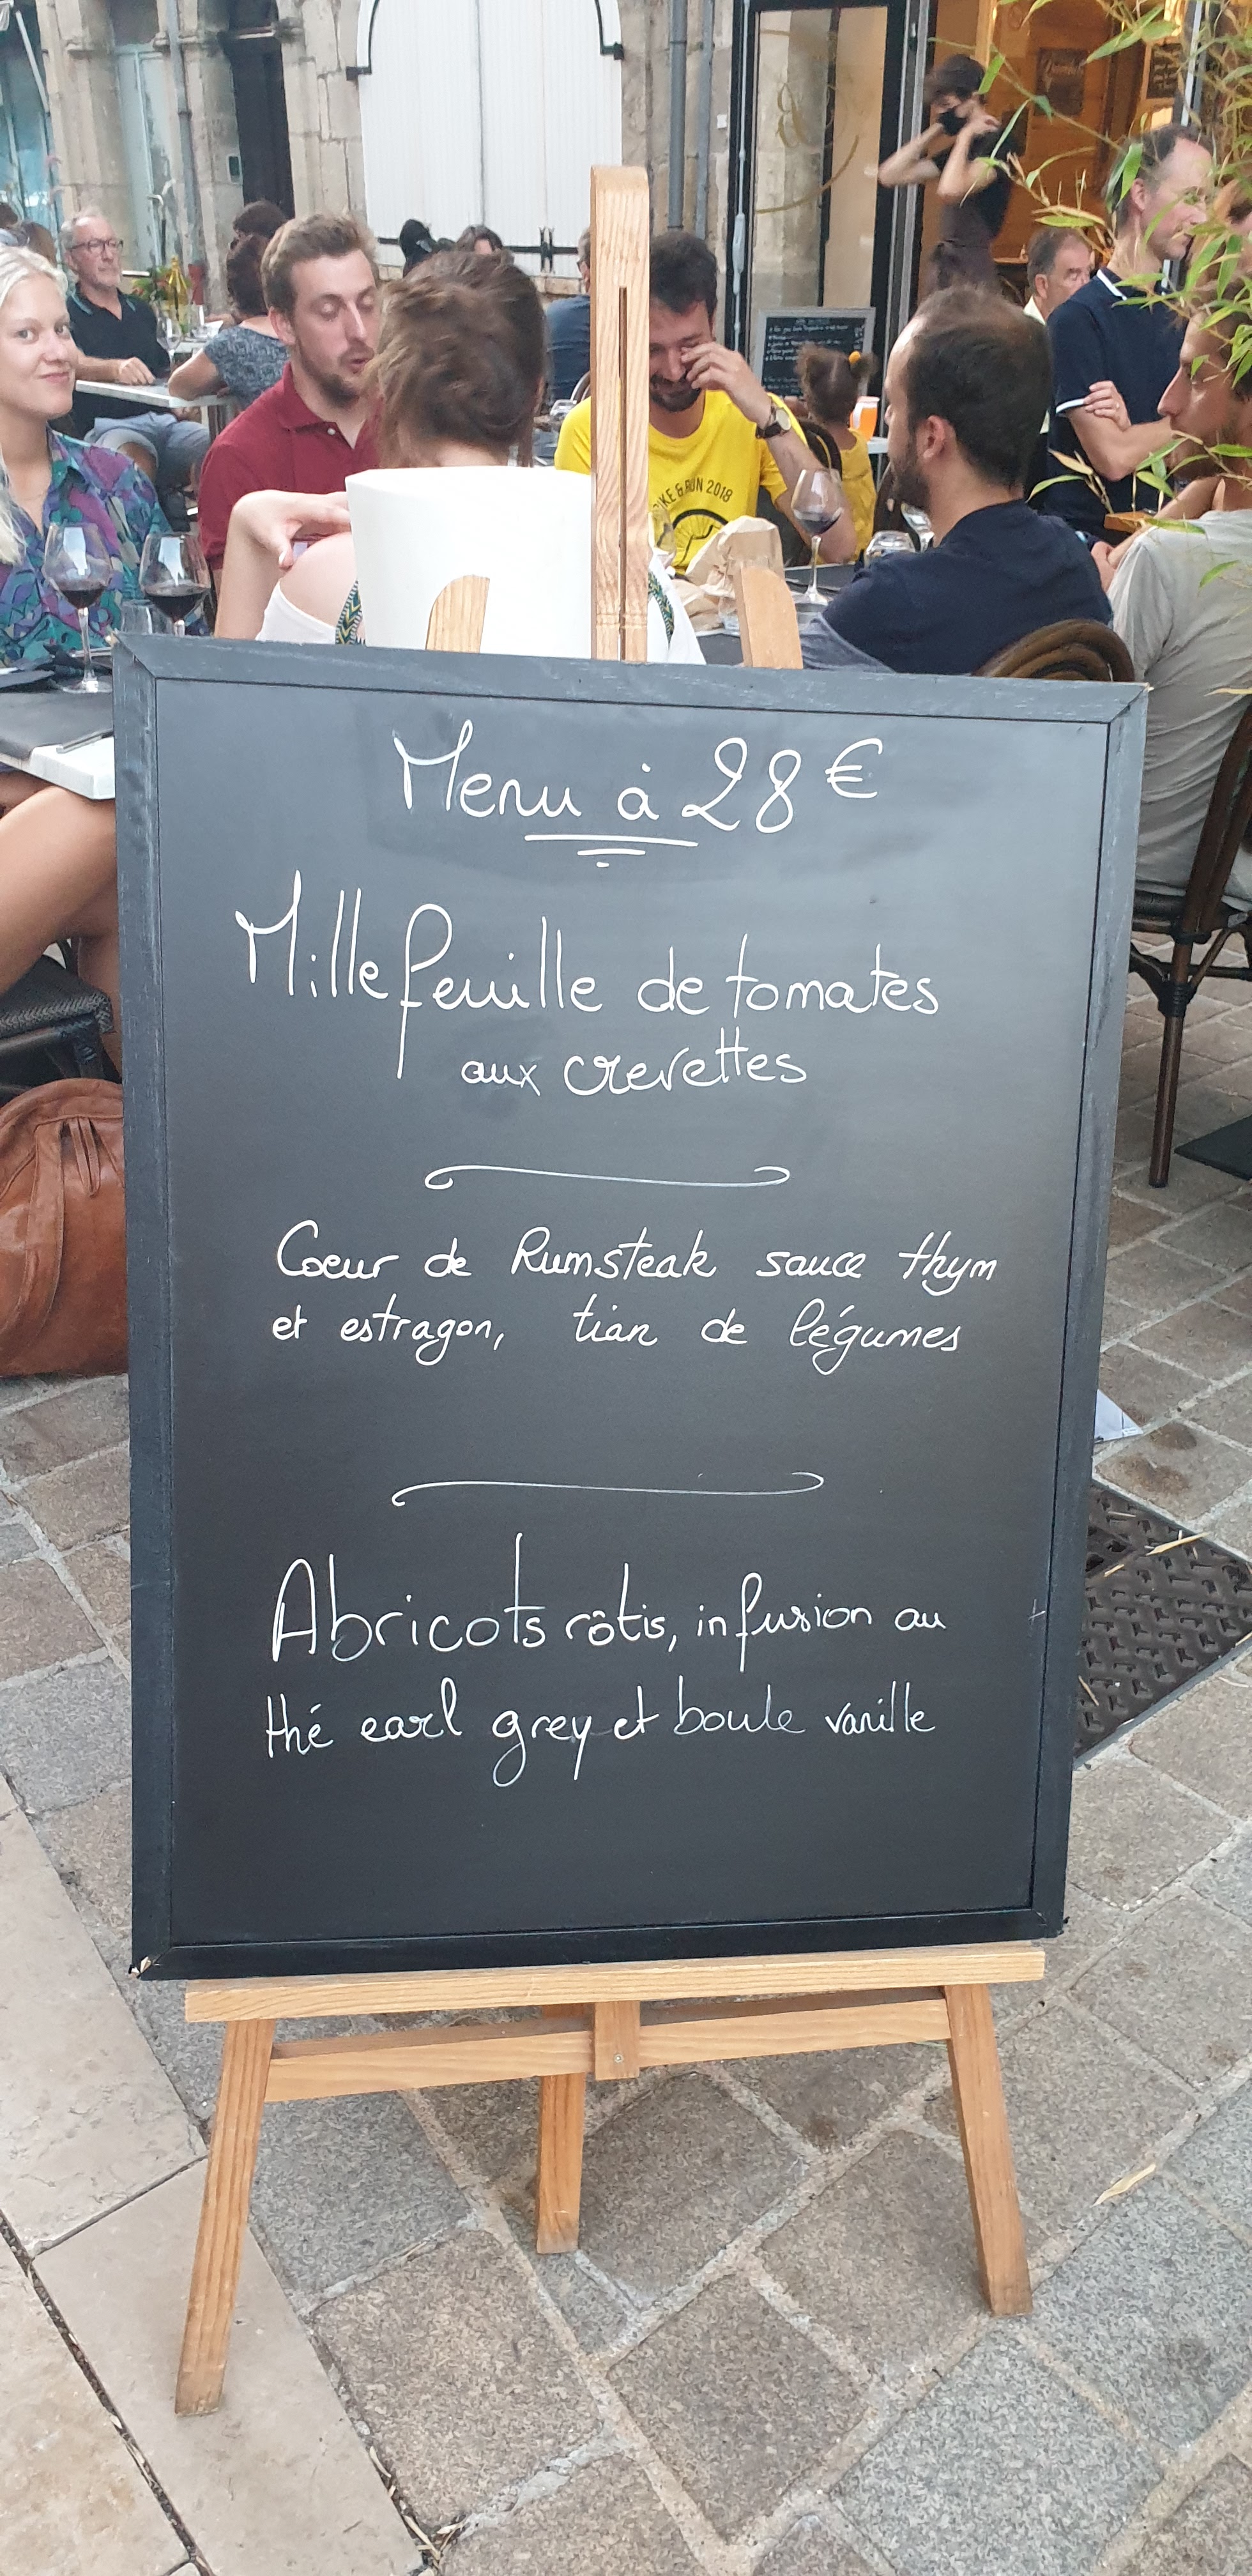 Menu à 28 €
Millefeuille de tomates
aux crevettes
Coeur de Rumsteak sauce thym
et estragon, tian de légumes
Abricots rôtis, infusion au
thé earl grey et boule vanille
BIKE & RUN 2018